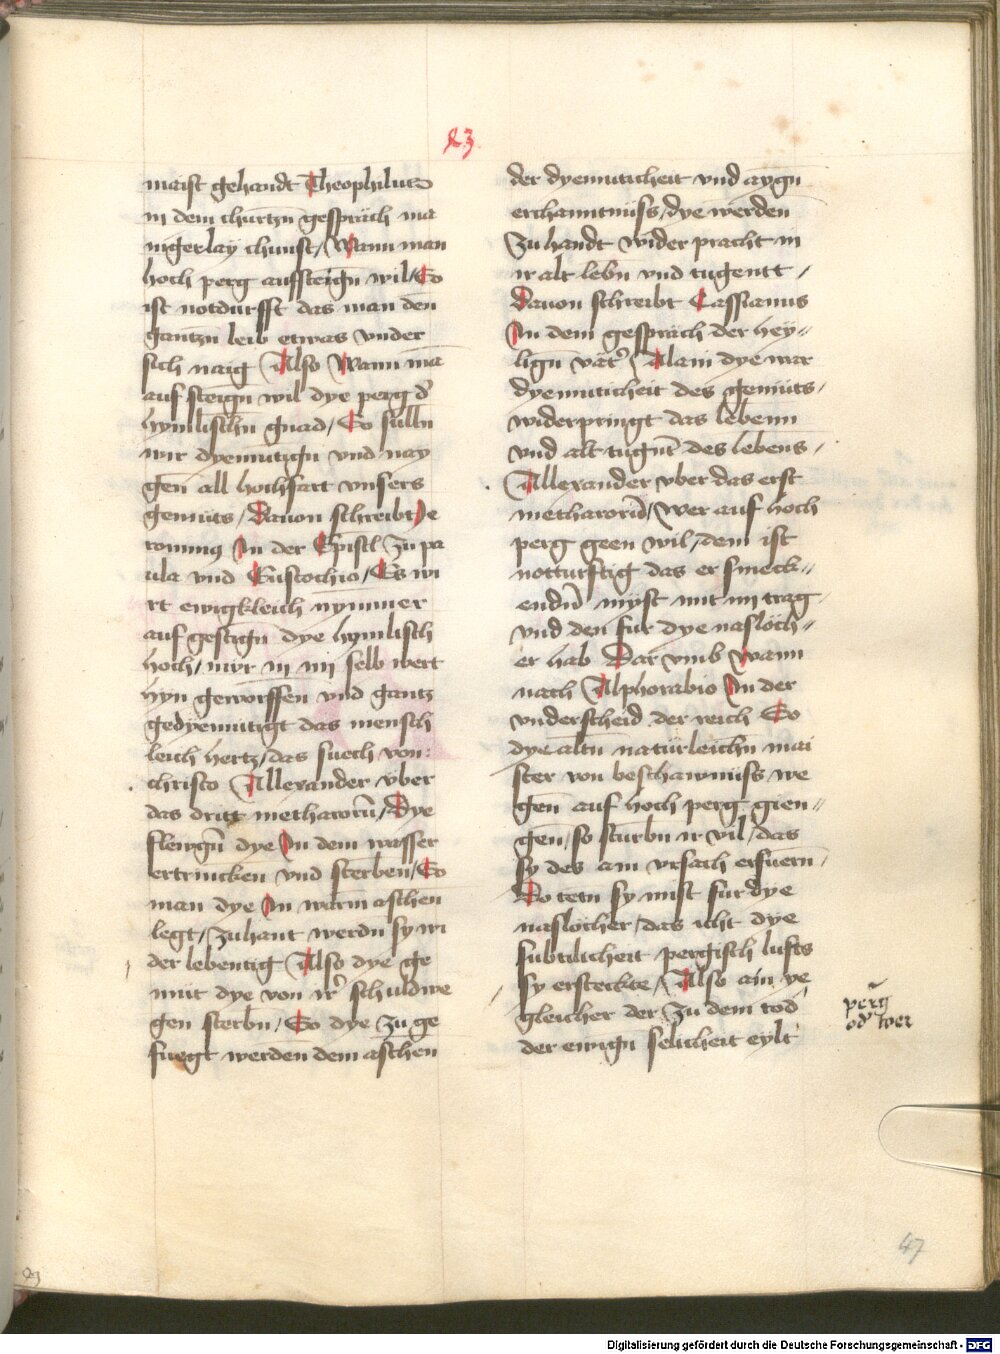 23
maist gehandt Theophilus
in dem churtzn gespräch ma
nigerlay chunst / Wann man
hoch perg aufsteign wil / So
ist notdurfft das man den
gantzn leib etwas vnder
sich naig Also Wann mā
auf steign wil dye perg d'
hymlischn gnad / So sulln
wir dyemutign vnd nay
gen all hochfart vnsers
gemüts / Dauon schreibt Je
ronimus In der Epistl zu pa
ula vnd Eustochio / Es wi
rt ewigkleich nymmer
auf gestign dye hymlisch
hoch / nwr in im selb wert
hyn geworffen vnd gantz
gedyemutigt das mensch
leich hertz / das suech von
christo Allexander vber
das dritt metharorū / Dye
flewgn dye In dem wasser
ertrincken vnd sterben / So
man dye In warm aschen
legt / zuhant werdn sy wi
der lebentig Also dye ge
müt dye von ir' schuldwe
gen sterbn / So dye zu ge
fuegt werden dem aschen
der dyemuticheit vnd aygn
erchanntnüss / dye werden
zu handt wider pracht in
ir alt lebn vnd tugentt /
Dauon schreibt Cassianus
In dem gespräch der hey-
lign vät' / Alain dye war
dyemuticheit des gemüts /
widerpringt das lebenn
vnd alt tugnt des lebens /
Allexander vber das erst
metharorū / Wer auf hoch
perg geen wil / dem ist
notturftig das er smeck-
endn myst mit im trag
vnd den fur dye naslöch-
er hab Dar vmb Wann
nach Alphorabio In der
vnderscheid der reich So
dye altn naturleichn mai
ster von beschawnüss we
gen auf hoch perg gien-
gen / so sturbn ir vil / das
sy des ain vrsach erfuern /
Do tetn sy mist fur dye
naslöcher / das icht dye
subtilicheit pergisch lufts
sy ersteckte / Also ain ye
gleicher der zu dem
der ewign selicheit eylt
perg
od'
47
Digitalisierung gefördert durch die Deutsche Forschungsgemeinschaft - DFG